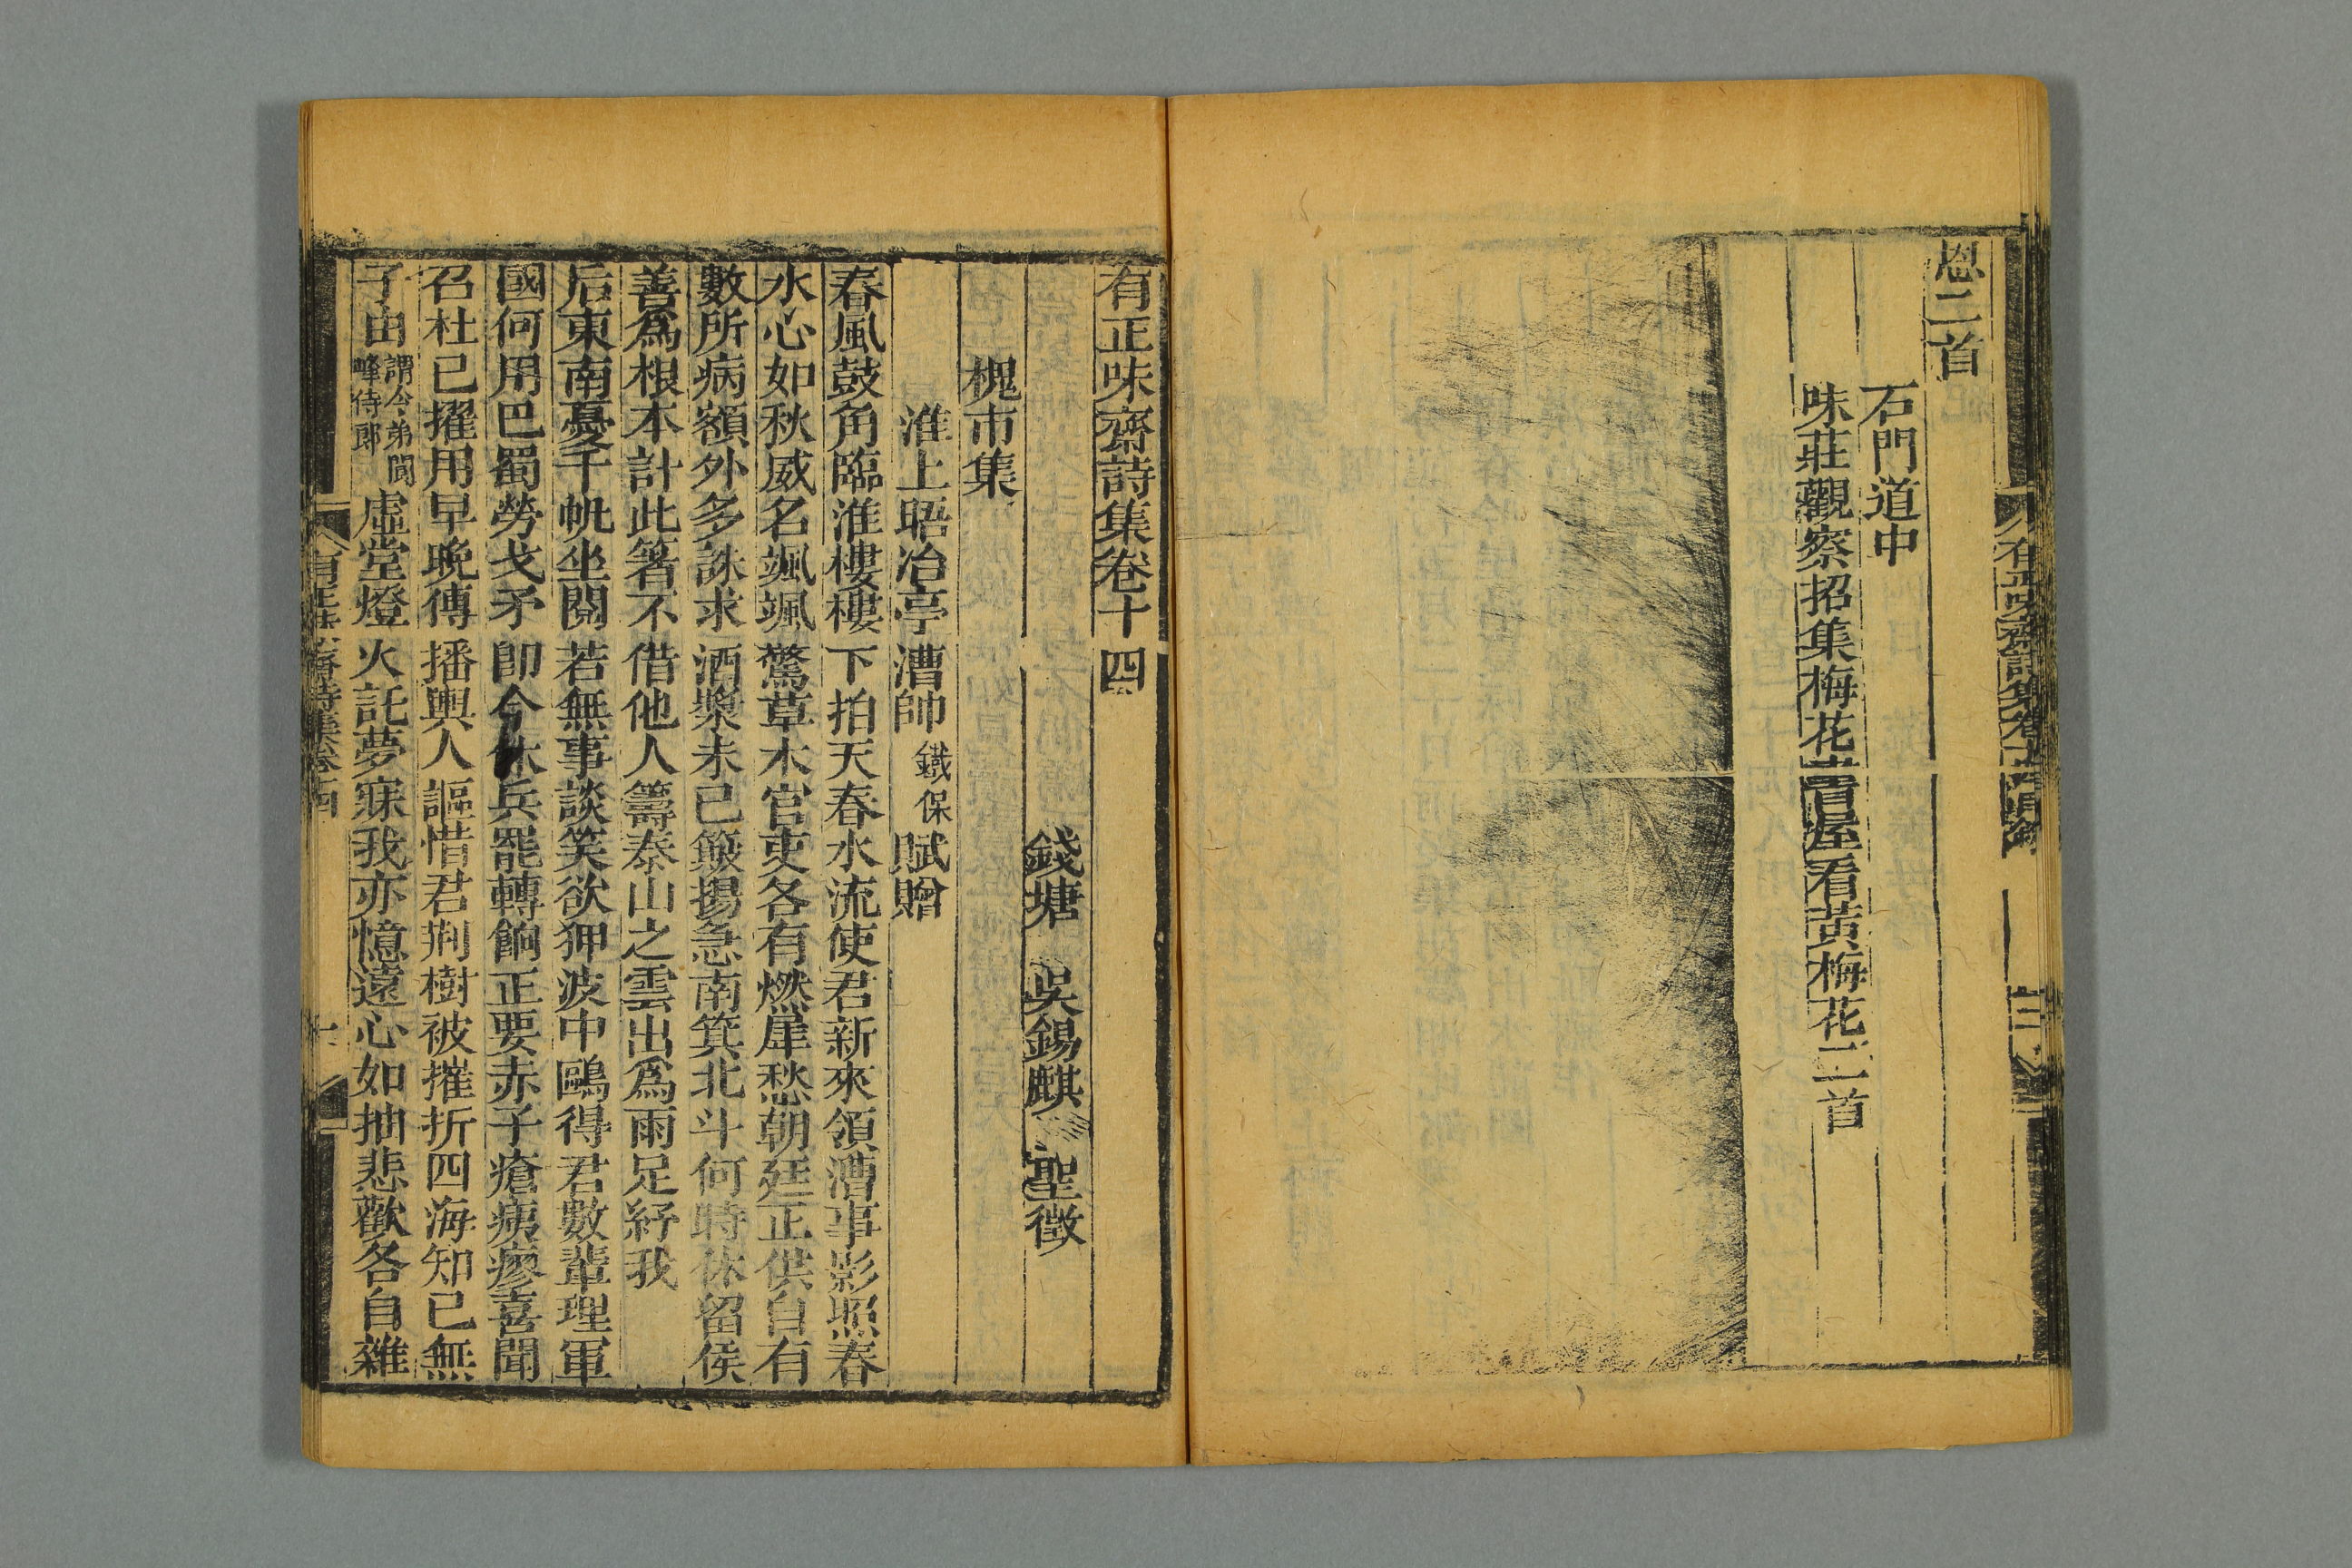 恩二首
石門道中
味莊觀察招集梅花書屋看黃梅花二首
有正味齋詩集卷十四
錢塘 吳錫麒 聖徵
槐市集
淮上晤冶亭漕帥鐵保賦贈
春風鼓角臨淮樓樓下拍天春水流使君新來領漕事影照春
水心如秋威名颯颯驚草木官吏各有燃犀愁朝廷正供自有
數所病額外多誅求酒漿未已簸揚急南箕北斗何時休留侯
善爲根本計此箸不借他人籌泰山之雲出爲雨足紓我
后東南憂千帆坐閱若無事談笑欲狎波中鷗得君數輩理軍
國何用巴蜀勞戈矛卽今休兵罷轉餉正要赤子瘡痍瘳喜聞
召杜已擢用早晚傳播輿人謳惜君荆樹被摧折四海知已無
子由謂令弟閬峰侍郎虛堂燈火託夢寐我亦憶遠心如抽悲歡各自雜